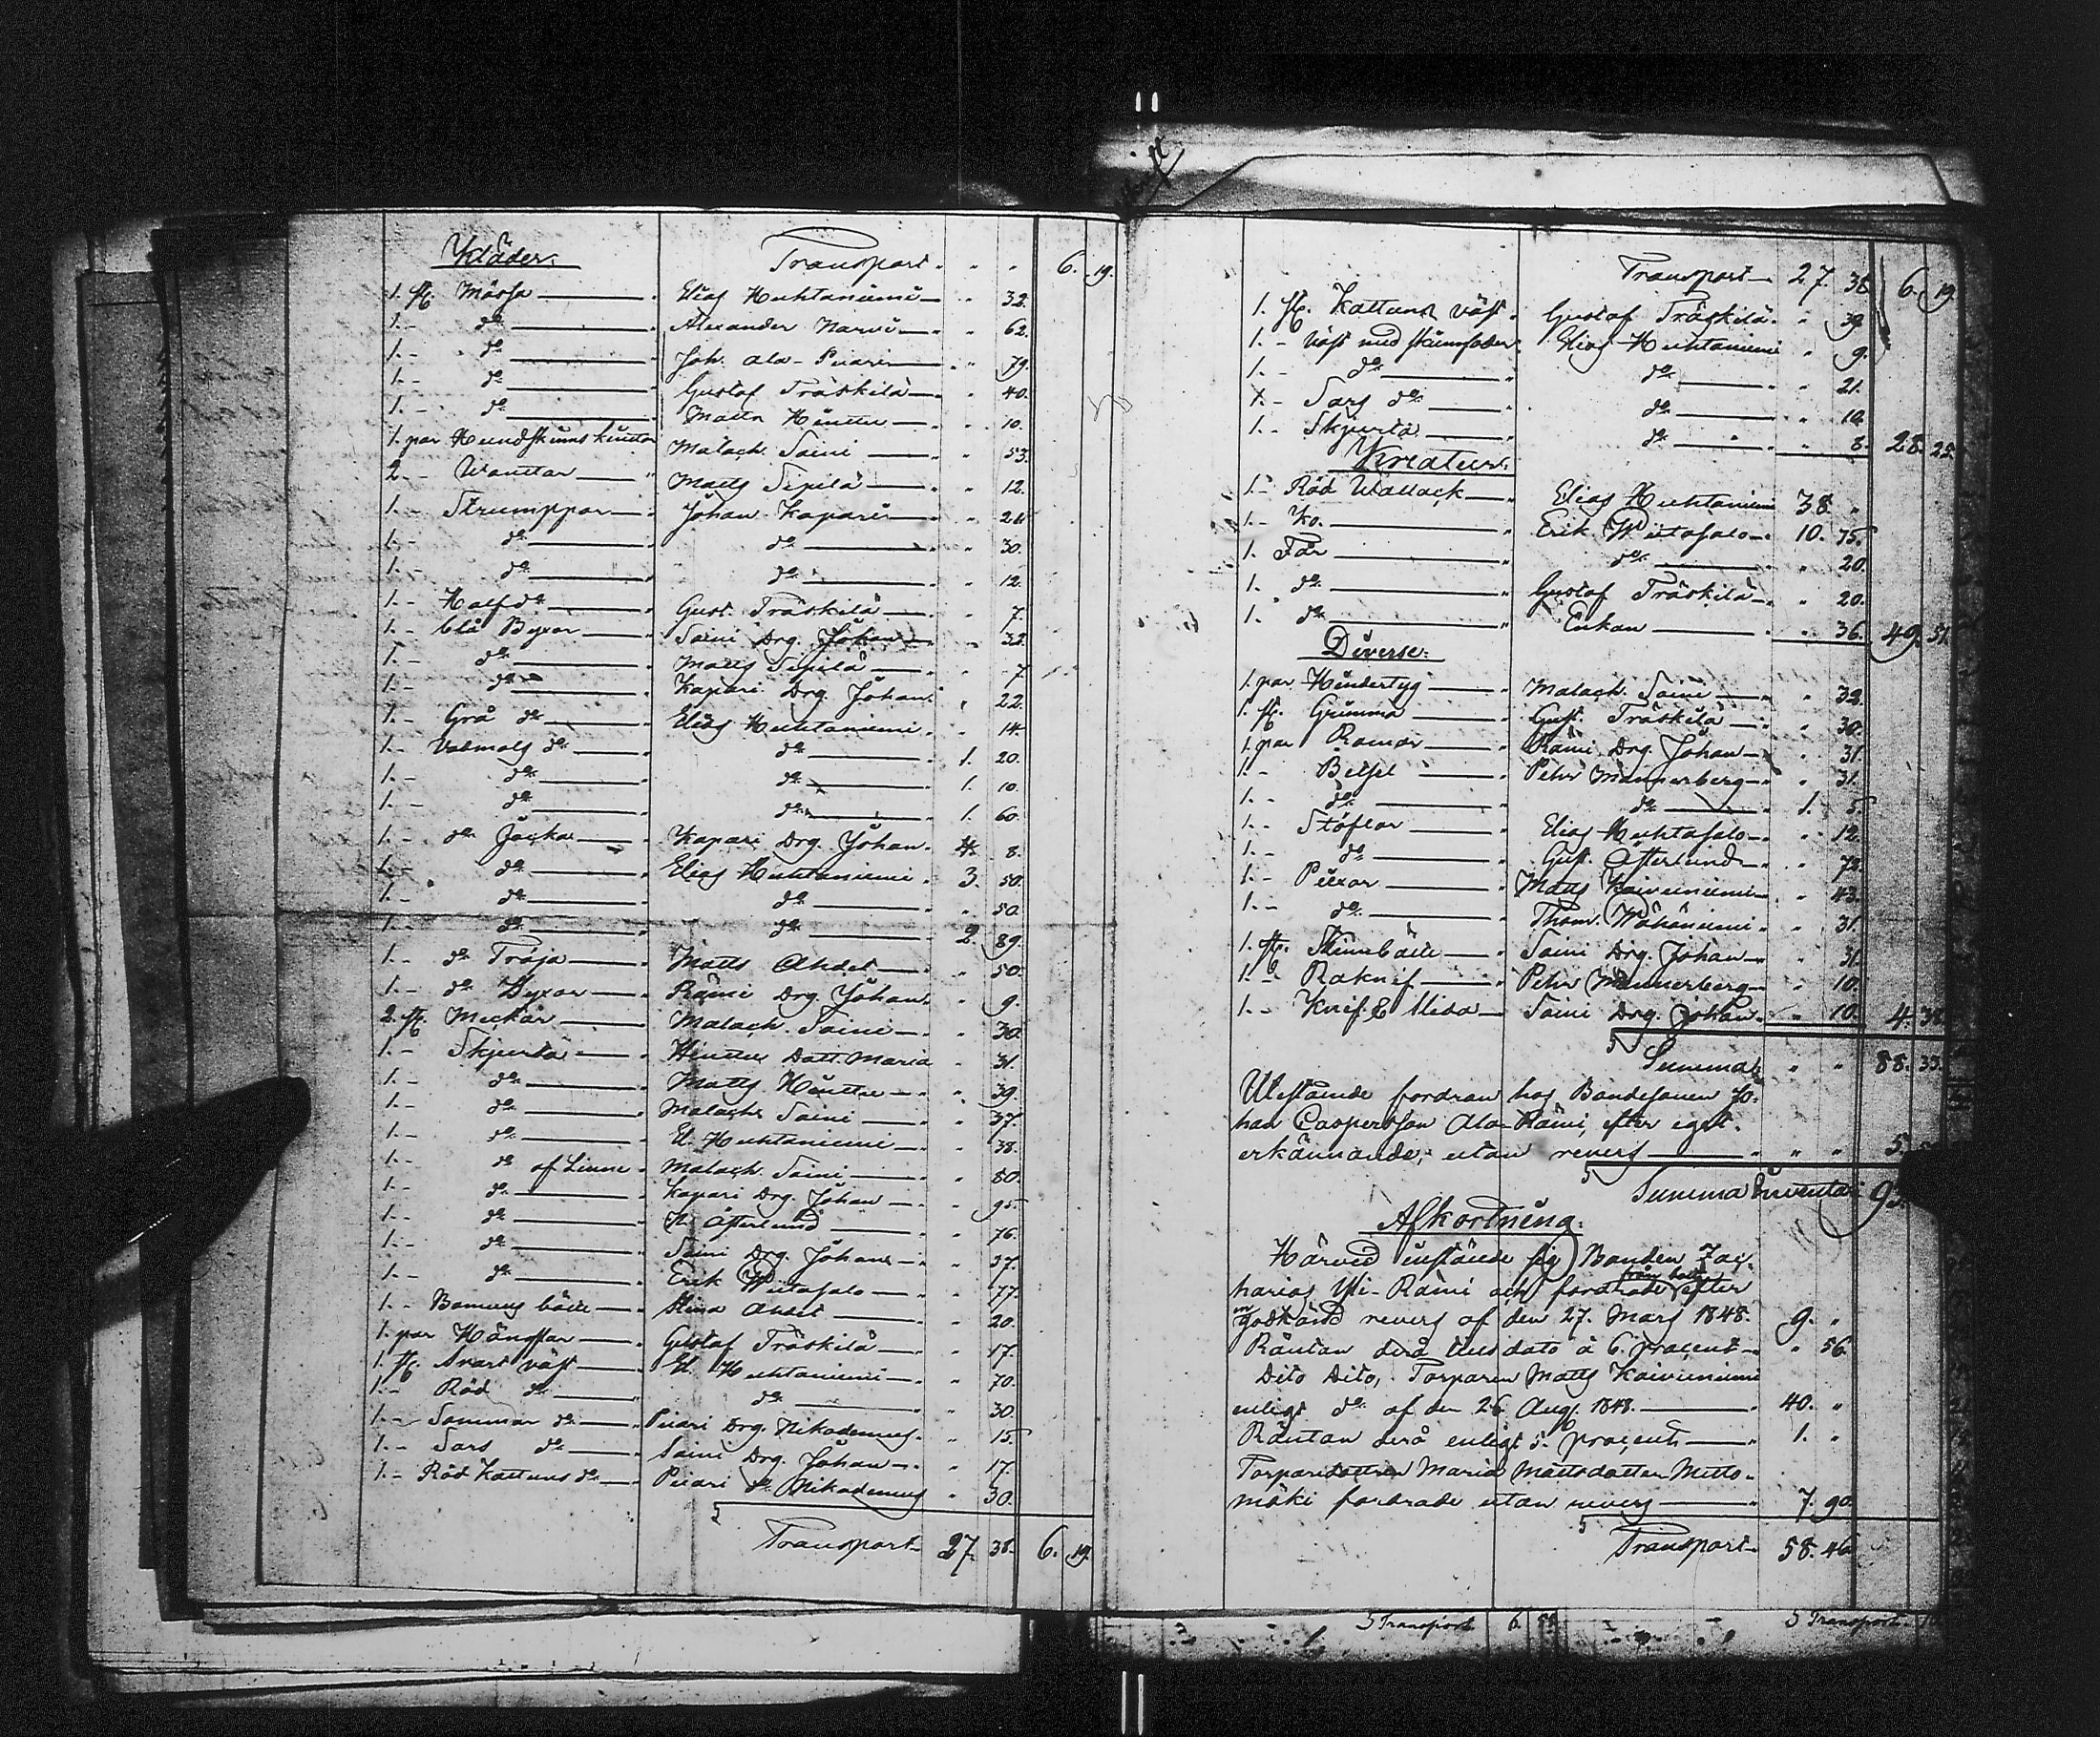 Kläder. Transport - " " 6. 19.
1. st. Mössa — Elias Huhtaniemi — " 32.
1. - do — Alexander Narvi — " 62.
1. - do — Joh. Ala-Piiari — " 79.
1. - do — Gustaf Träskilä — " 40.
1. - do — Matts Hinttu — " 10.
1. par Hundskinns Malach. Saini — " 53.
2. - Wanttar — Matts Sipilä — " 12.
1. - Strumppor — Johan Kapari — "
1. - do — do — " 30.
1. - do — do — " 12.
1. - Half do — Gust. Träskilä — " 7.
1. - blå Byxor — Saini Drg. Johan — " 32.
1. - do — Matts Sipilä — " 7.
1. - do — Kapari Drg. Johan " 22.
1. - Grå do — Elias Huhtaniemi " 14.
1. - Valmals do — do — 1. 20.
1. - do — do — 1. 10.
1. - do — do — 1. 60.
1. - do Jacka — Kapari Drg. Johan. 4. 8.
1. - do — Elias Huhtaniemi. 3. 50.
1. - do — do — " 50.
1. - do — do — 2. 89.
1. - do Tröja — Matts — " 50.
1. - do Byxor — Rämi Drg. Johan. " 9.
2. st. — Malach. Saini — " 30.
1. - Skjorta — Hinttu Dott. Maria " 31.
1. - do — Matts Hinttu — " 39.
1. - do — Malach. Saini — " 37.
1. - do — El. Huhtaniemi — " 38.
1. - do af Linne - Malach. Saini — " 80.
1. - do — Kapari Drg. Johan — " 95.
1. - do — Österlund — " 76.
1. - do — Saini Drg. Johan — " 37.
1. - do — Erik Wiitasalo — " 77.
1. - Bomulls bälte — Stina — " 20.
1. par Hängslar — Gustaf Träskilä — " 17.
1. st. Svart väst — El. Huhtaniemi — " 70.
1. - Röd do — do — " 30.
1. - Sommar do — Piiari Drg. Nikodemus. " 15.
1. - Sars do — Saini Drg. Johan — " 17.
1. - Röd Kattuns do — Piiari do Nikodemus " 30.
Transport - 27. 38. 6. 19.
Transport - 27. 38 6. 19.
1. st. Kattuns väst. Gustaf Träskilä. " 39.
1. - Väst med skinnfoder Elias Huhtaniemi " 9.
1. - do — do — " 21.
1. - Sars do — do — " 10.
1. - Skjorta — do — " 8. 28. 25.
Kreatur.
1. - Röd Wallack — Elias Huhtaniemi 38. "
1. - Ko. — Erik Wiitasalo - 10. 75.
1. Får — do — " 20.
1. do — Gustaf Träskilä — " 20.
1. do — Enkan — " 36. 49. 51.
Diverse.
1. par — Malach. Saini — " 32.
1. st. Grimma — Gust. Träskilä — " 30.
1. par Remar — Rämi Drg. Johan — " 31.
1. - Betsel — Petter Männerberg — " 31.
1. - do — do — 1. 5
1. - Stöflar — Elias Huhtasalo — " 12.
1. - do — Gust. Österlund — " 72.
1. - Piexor — Matts Koivuniemi — " 43.
1. - do — Thom. Wähäniemi. " 31.
1. st. Skinnbälte — Saini Drg. Johan — " 31.
1. - Raknif — Petter Männerberg — " 10.
1. - Knif & slida — Saini Drg. Johan. " 10. 4.
Summa " " 88.
Utestående fordran hos Bondesonen Jo-
han Caspersson Ala-Rämi, efter eget
erkännande, utan revers — " " 5.
Summa Inventar.
Afkortning.
Härvid instände sig Bonden Zac-
harias Yli-Rämi och fordrade efter
godkänd revers af den 27. Mars 1848. 9. "
Räntan derå till dato à 6. procent — " 56.
Dito Dito, Torparen Matts Koivuniemi
enligt do af den 26 Aug. 1848. — 40. "
Räntan derå enligt 5. procent — 1. "
Torparedottren Maria Mattsdotter Metto-
mäki fordrade utan revers — 7. 90.
Transport - 58. 46.
Transport 6. Transport.